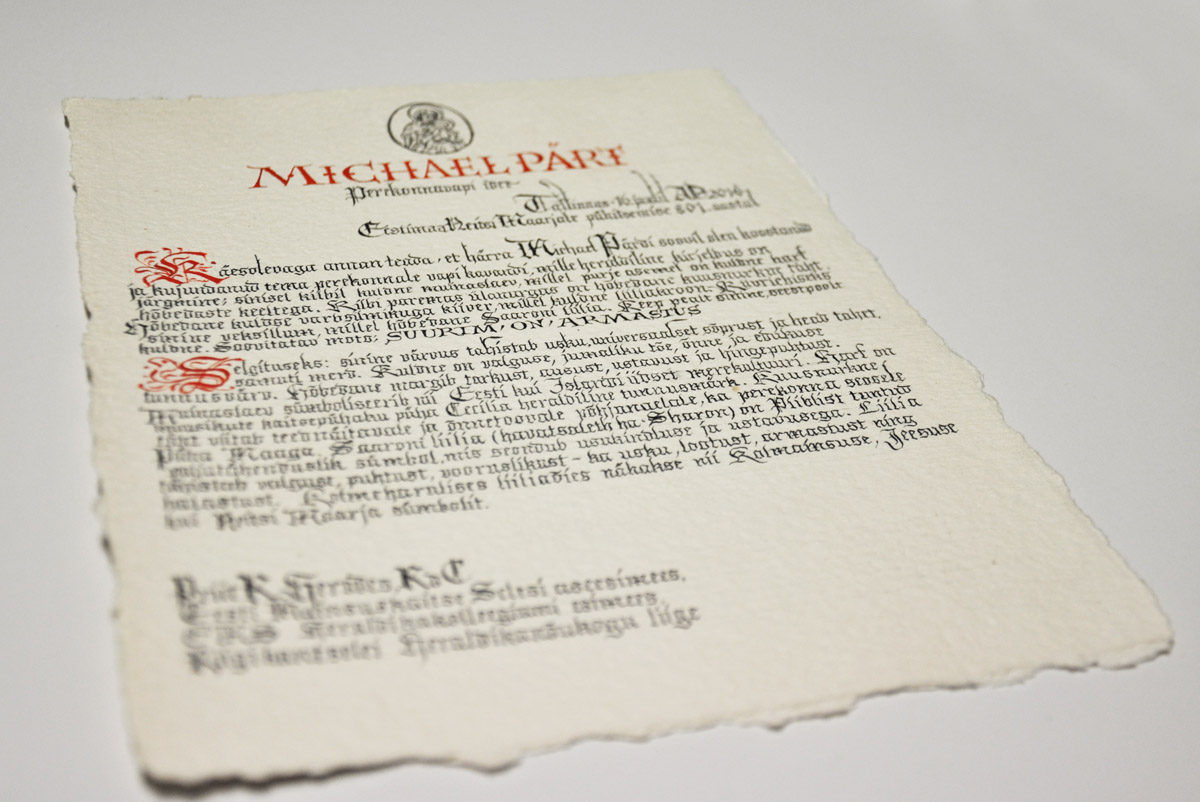 MICHAEL PÄRT
Perekonnavapi idee
Tallinnas 16. juulil AD 2016
Eestimaa Neitsi Maarjale pühitsemise 801. aastal
Käesolevaga annan teada, et härra Michael Pärdi soovil olen koostanud
ja kujundanud tema perekonnale vapi kavandi, mille heraldiline kirjeldus on
järgmine: sinisel kilbil kuldne muinaslaev, millel purje asemel on kuldne harf
hõbedaste keeltega. Kilbi paremas ülanurgas on hõbedane kuusnurkne täht.
Hõbedane kuldse varbsilmikuga kiiver, millel kuldne liiliakroon. Kiivriehiseks
sinine veksillum, millel hõbedane Saaroni liilia. Keep pealt sinine, seestpoolt
kuldne. Soovitatav moto: SUURIM ON ARMASTUS
Selgituseks: sinine värvus tähistab usku, universaalset sõprust ja head tahet,
samuti merd. Kuldne on valguse, jumaliku tõe, õnne ja edukuse
tunnusvärv. Hõbedane märgib tarkust, ausust, ustavust ja hingepuhtust.
Muinaslaev sümboliseerib nii Eesti kui Islandi üüset merekultuuri. Harf on
muusikute kaitsepühaku püha Cecilia heraldiline tunnusmärk. Kuusnurkne
täht viitab teednäitavale ja õnnetoovale põhjanaelale, ka perekonna seosele
Püha Maaga. Saaroni liilia (havatselet ha-Sharon) on Piiblist tuntud
paljutähenduslik sümbol, mis seondub usukindluse ja ustavusega. Liilia
tähistab valgust, puhtust, vooruslikkust – ka usku, lootust, armastust ning
halastust. Kolmeharulises liiliaõies nähakse nii Kolmainsuse, Jeesuse
kui Neitsi Maarja sümbolit.
Priit Herodes,
Eesti Muinsuskaitse Seltsi aseesimees,
EMKS Heraldikakolleegiumi esimees,
Riigikantselei Heraldikanõukogu liige